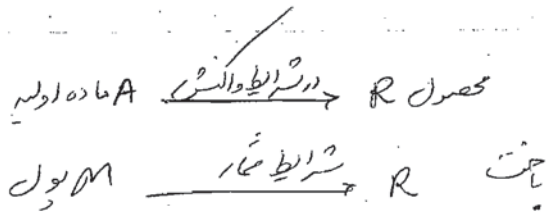 ماده اولیه A در شرایط واکنش → R محصول
پول M شرایط قمار → R باخت